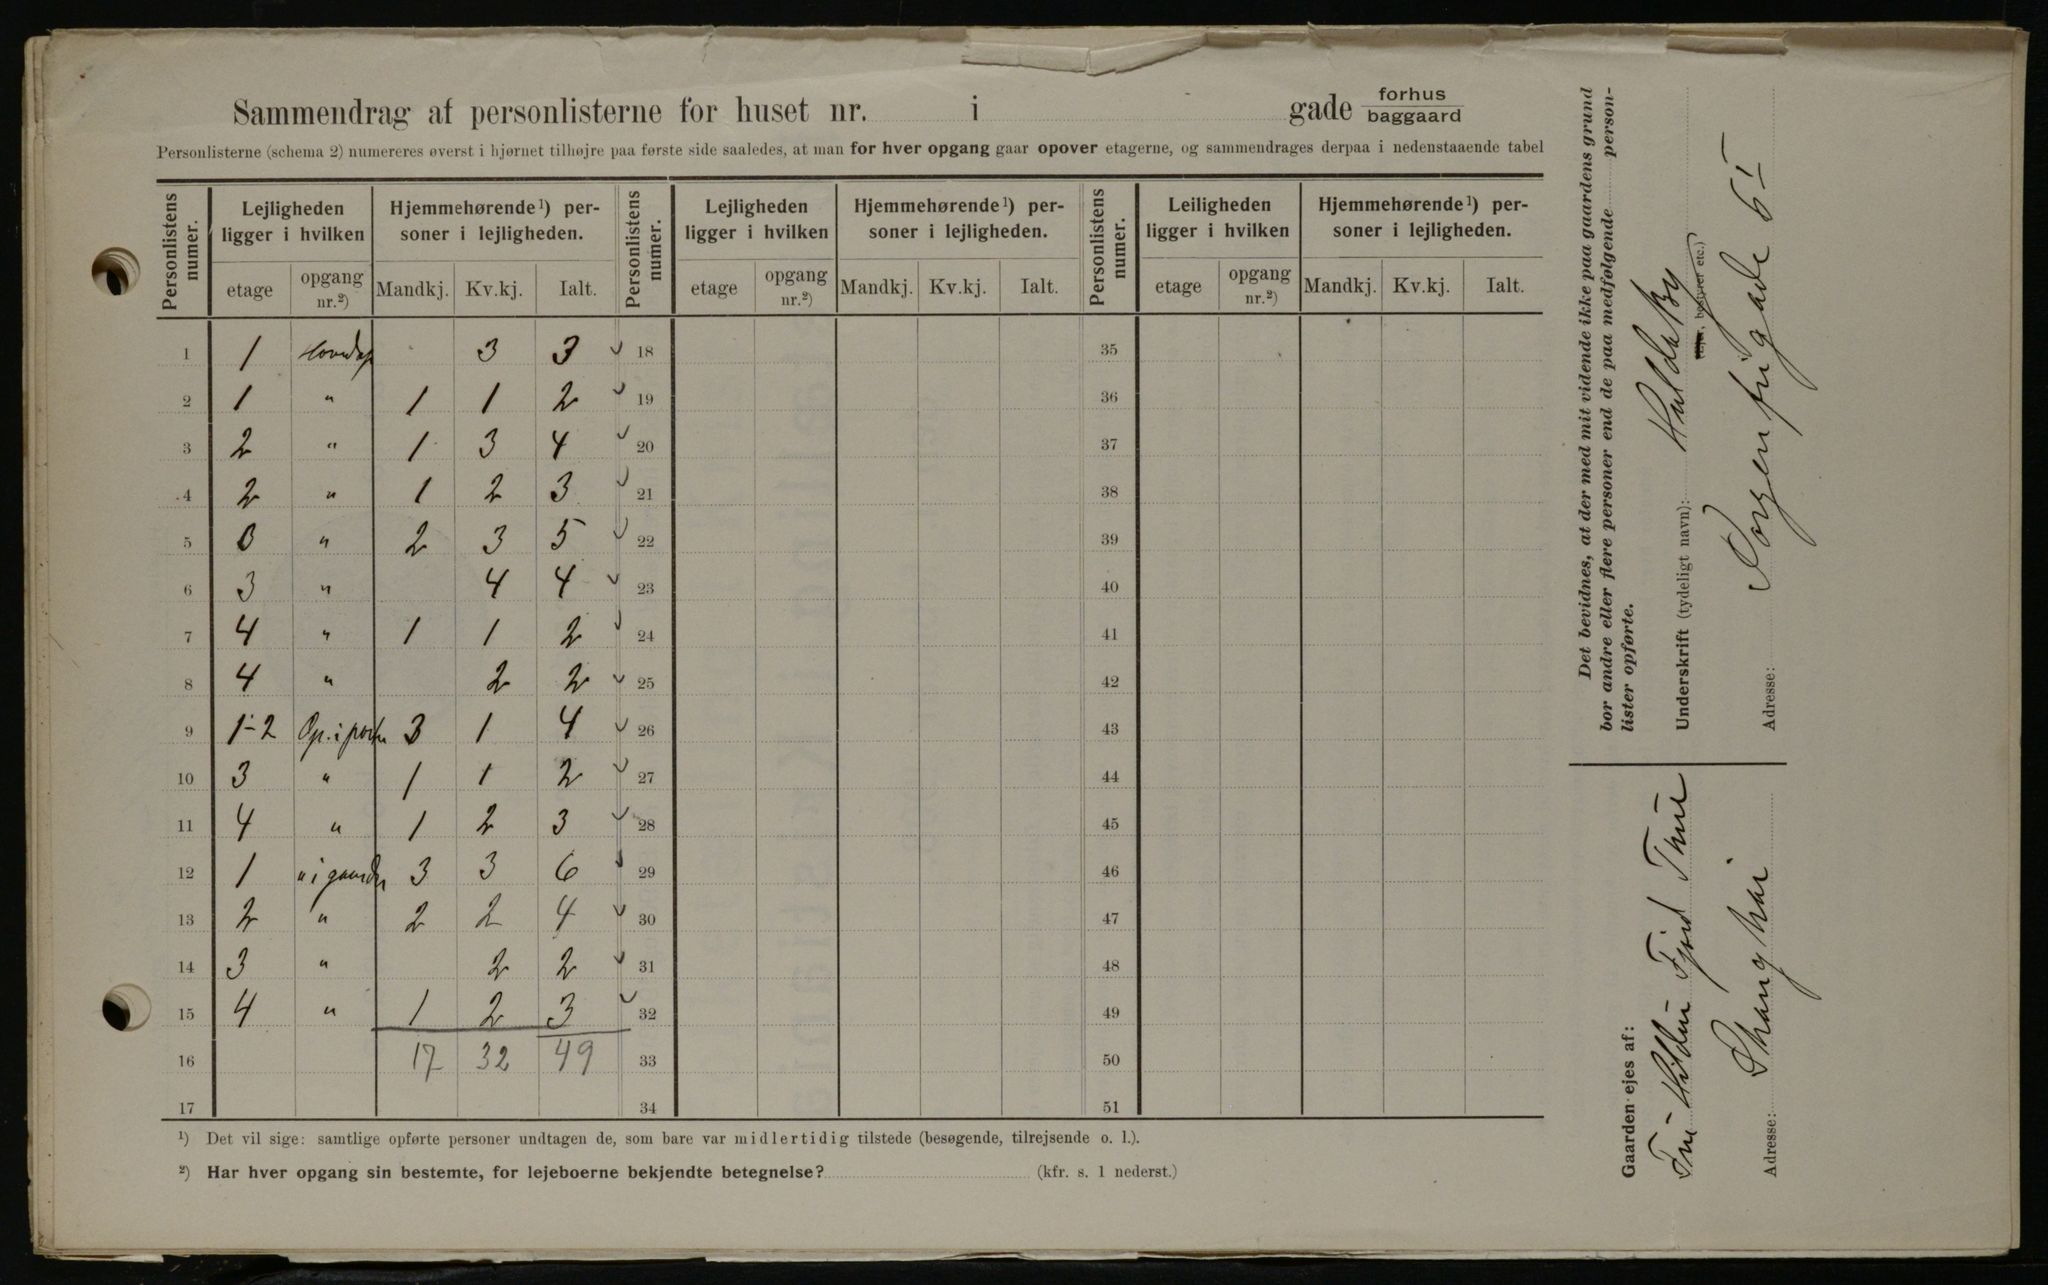 Sammendrag af personlisterne for huset nr. i gade forhus baggaard
Personlisterne (schema 2) numereres øverst i hjørnet tilhøjre paa første side saaledes, at man for hver opgang gaar opover etagerne, og sammendrages derpaa i nedenstaaende tabel
Personlistens numer. Lejligheden ligger i hvilken Hjemmehørende¹) personer i lejligheden. Personlistens numer. Lejligheden ligger i hvilken Hjemmehørende¹) personer i lejligheden. Personlistens numer. Leiligheden ligger i hvilken Hjemmehørende¹) personer i lejligheden.
etage opgang nr.²) Mandkj. Kv.kj. Ialt. etage opgang nr.²) Mandkj. Kv.kj. Ialt. etage opgang nr.²) Mandkj. Kv.kj. Ialt.
1 1 Hovedop 3 3 18 35
2 1 " 1 1 2 19 36
3 2 " 1 3 4 20 37
4 2 " 1 2 3 21 38
5 3 " 2 3 5 22 39
6 3 " 4 4 23 40
7 4 " 1 1 2 24 41
8 4 " 2 2 25 42
9 1-2 Op. i porten 3 1 4 26 43
10 3 " 1 1 2 27 44
11 4 " 1 2 3 28 45
12 1 " i gaarden 3 3 6 29 46
13 2 " 2 2 4 30 47
14 3 " 2 2 31 48
15 4 " 1 2 3 32 49
16 17 32 49 33 50
17 34 51
¹) Det vil sige: samtlige opførte personer undtagen de, som bare var midlertidig tilstede (besøgende, tilrejsende o. l.).
²) Har hver opgang sin bestemte, for lejeboerne bekjendte betegnelse? (kfr. s. 1 nederst.)
Det bevidnes, at der med mit vidende ikke paa gaardens grund
bor andre eller flere personer end de paa medfølgende person-
lister opførte.
Underskrift (tydeligt navn): Hulda By
(Ejer, bestyrer etc.)
Adresse: Sorgenfrigade 6 I
Gaarden ejes af:
Hilda Fjeld Thue
Adresse: Shanghai